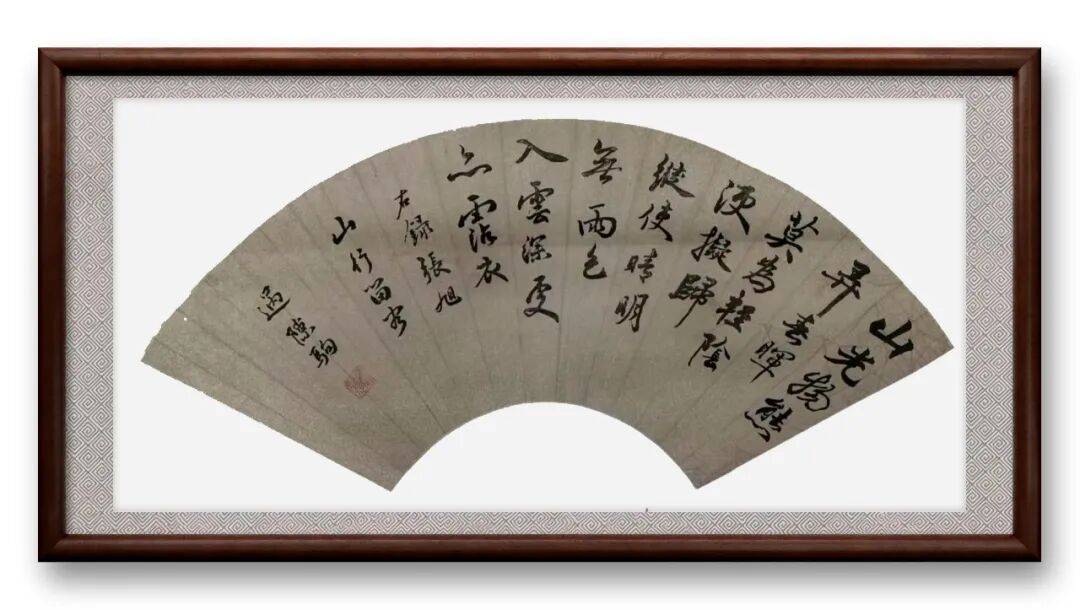 山光物態
弄春暉
莫為輕陰
便擬歸
縱使晴明
無雨色
入雲深處
亦霑衣
右錄張旭
山行留客
過隙駒